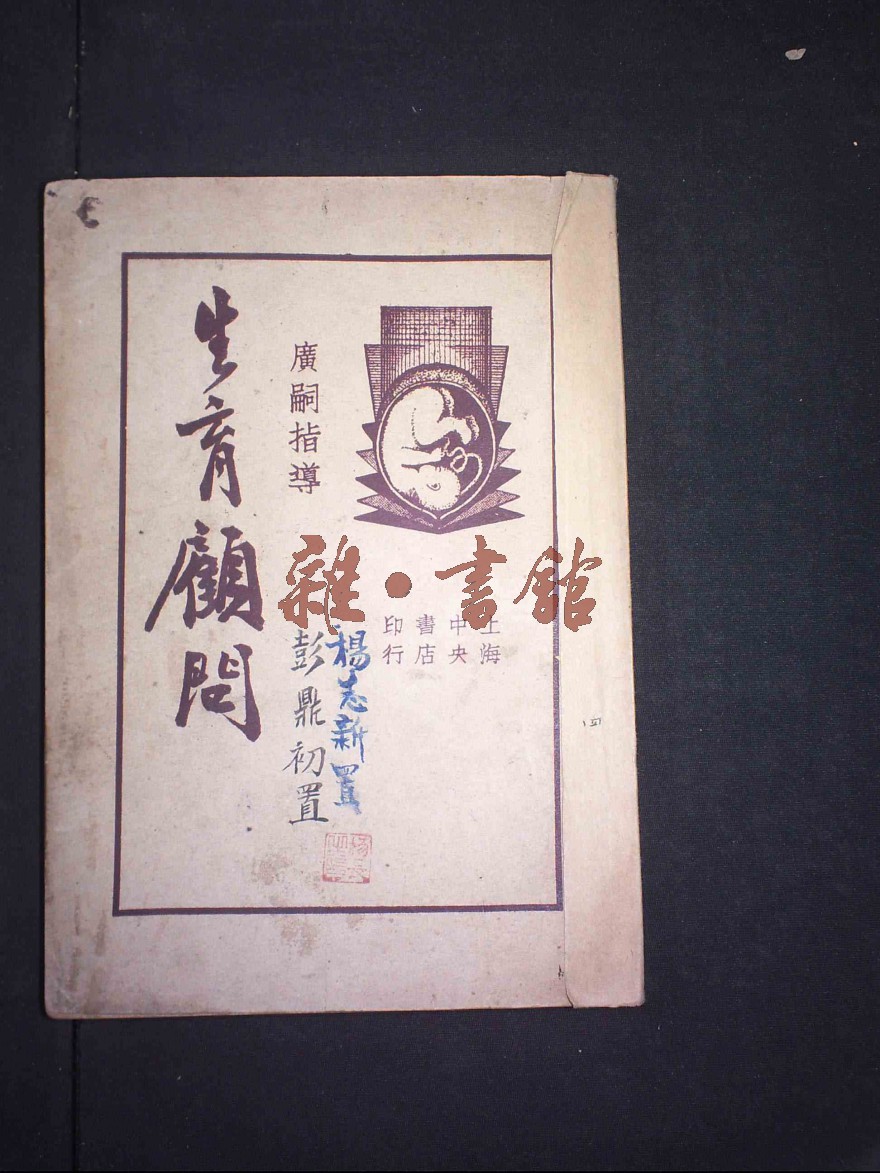 上海
中央
書店
印行
楊志新置
廣嗣指導
彭鼎初置
生育顧問
雜·書館